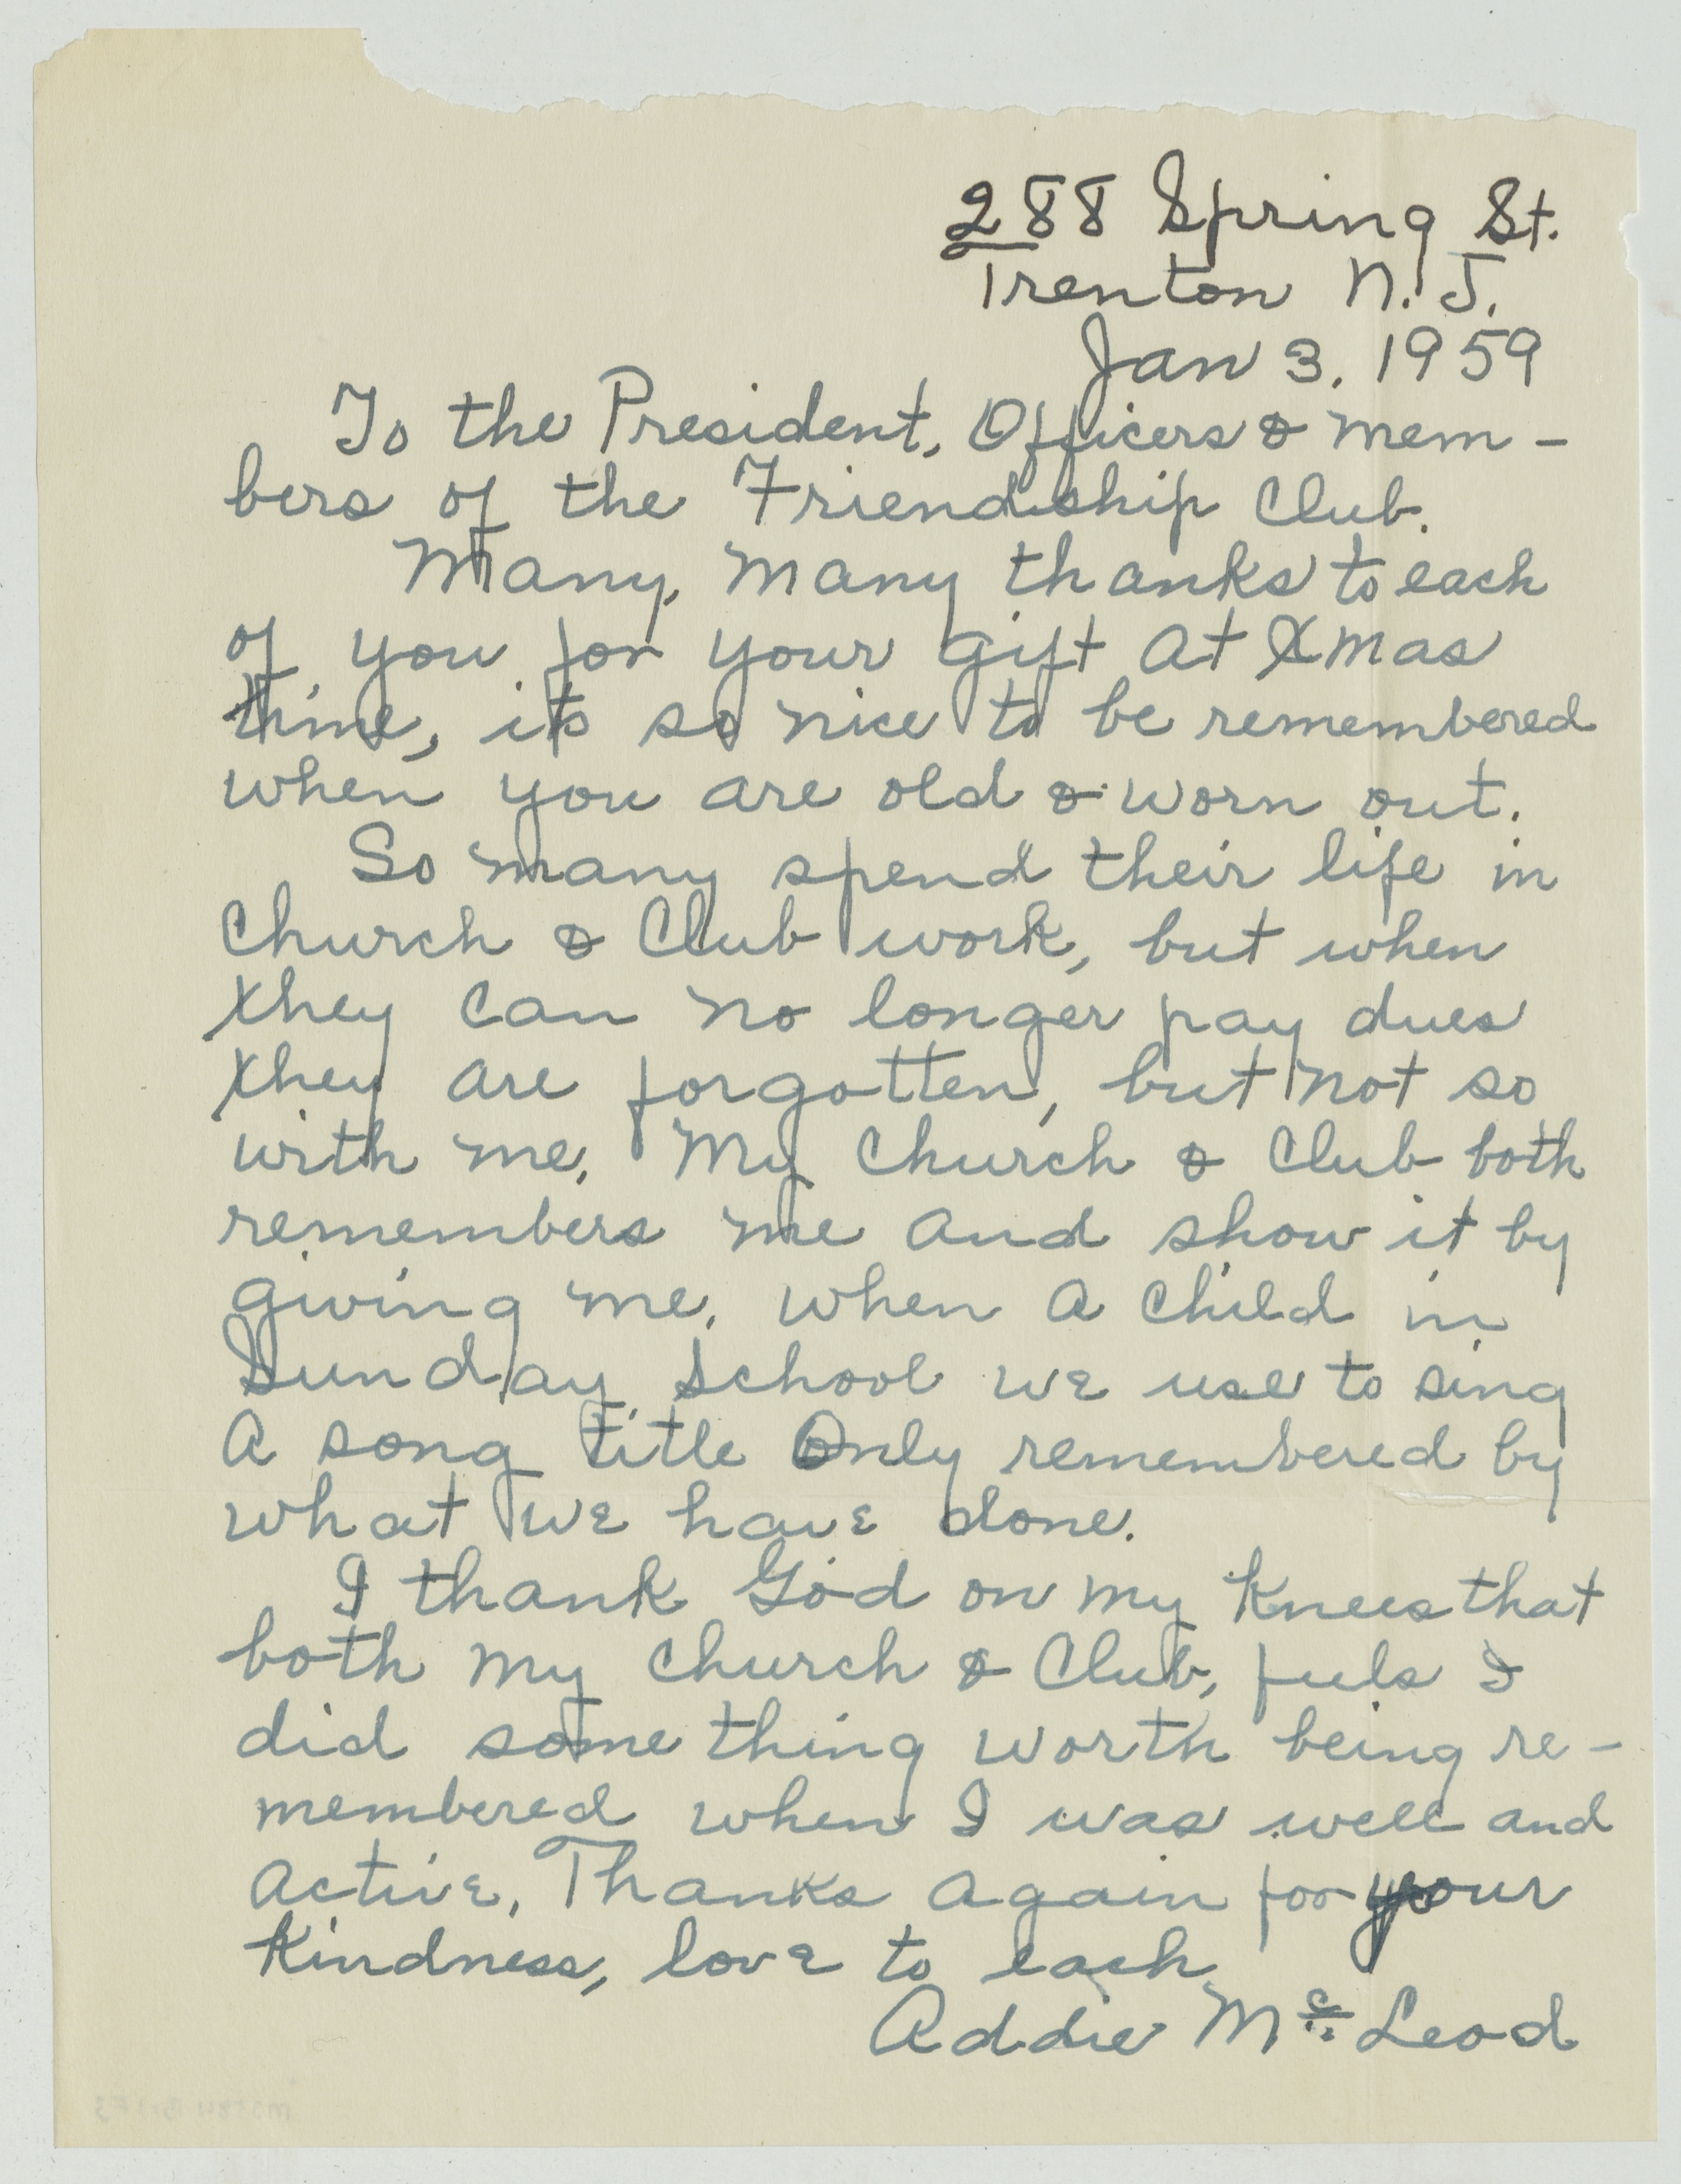 288 Spring St.
Trenton N. J.
Jan 3. 1959
To the President, Officers & mem-
bers of the Friendship Club.
Many, many thanks to each
of you for your gift at Xmas
time, its so nice to be remembered
when you are old & worn out.
So many spend their life in
Church & Club work, but when
they can no longer pay dues
they are forgotten, but not so
with me. My Church & Club both
remembers me and show it by
giving me. When a child in
Sunday School we use to sing
a song title Only remembered by
what we have done.
I thank God on my Knees that
both my Church & Club, feels I
did some thing worth being re-
membered when I was well and
active. Thanks again for your
Kindness, love to each
Addie McLeod